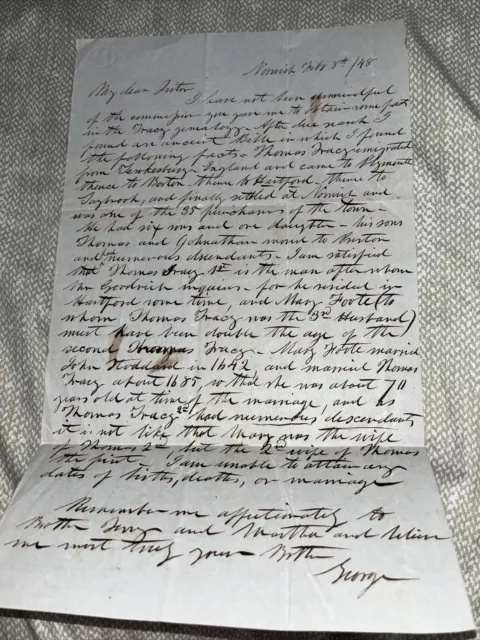 Norwich Feb. 8th /48
My dear Sister
I have not been unmindful
of the commission you gave me to obtain some facts
in the Tracy genealogy - After due search I
found an ancient Bible in which I found
the following facts - Thomas Tracy emigrated
from Tewkesbury - England and came to Plymouth
thence to Boston - thence to Hartford - thence to
Saybrook, and finally settled at Norwich and
was one of the 35 purchasers of the town -
He had six sons and one daughter - his sons
Thomas and Johnathan moved to Preston
and numerous descendants - I am satisfied
that Thomas Tracy 1st is the man after whom
Goodrich inquires - for he resided in
Hartford some time, and Mary Foote (to
whom Thomas Tracy was the 3rd Husband)
must have been double the age of the
second Thomas Tracy - Mary Foote married
John Stoddard in 1642, and married Thomas
Tracy about 1685, so that she was about 70
years old at time of the marriage, and as
Thomas Tracy 2d had numerous descendants
it is not like that Mary was the wife
of Thomas 2d but the 2d wife of Thomas
the first - I am unable to attain any
dates of births, deaths, or marriage
Remember me affectionately to
Brother and Martha and believe
me most truly your Brother
George